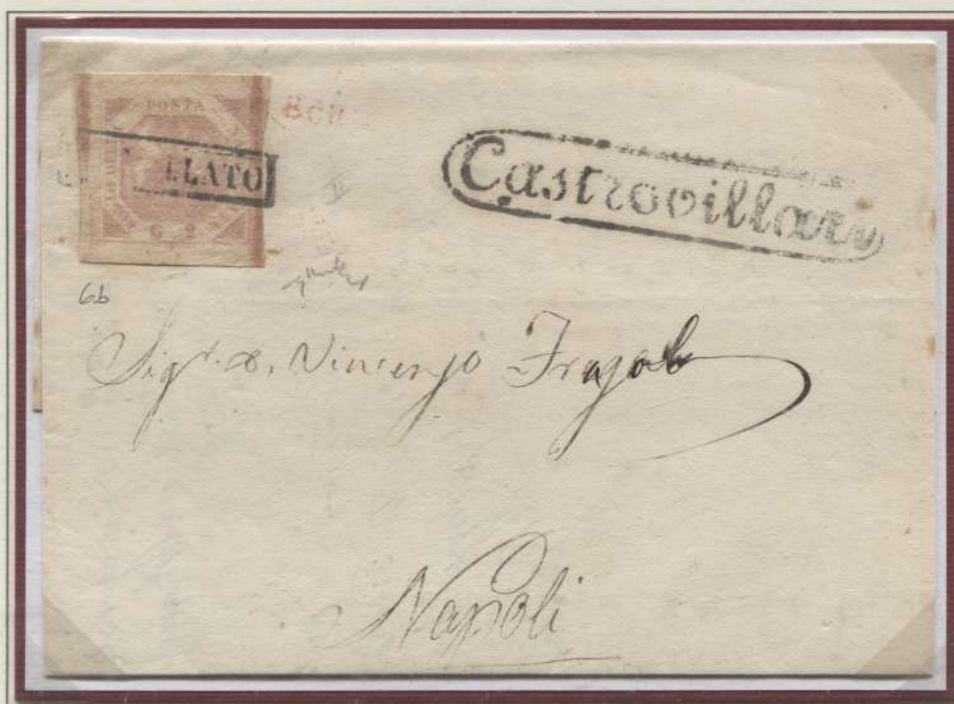 POSTA
LLATO
G 2
Castrovillari
6b
Sigr. D. Vincenzo
Napoli